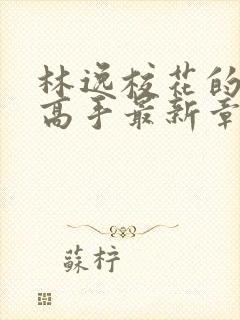 林逸校花的
高手最新章
蘇柠